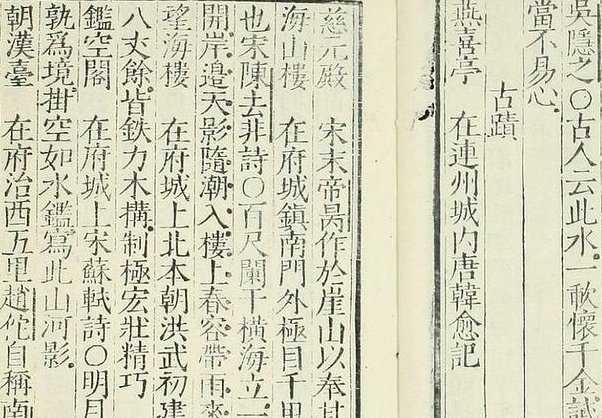 吳隱之〇古人云此水一歃懷千金試
當不易心
古蹟
燕喜亭 在連州城內唐韓愈記
慈元殿 宋末帝昺作於崖山以奉其
海山樓 在府城鎮南門外極目千里
也宋陳去非詩〇百尺闌干橫海立一
開岸邊天影隨潮入樓上春容帶雨來
望海樓 在府城上北本朝洪武初建
八丈餘皆鉄力木搆制極宏壯精巧
鑑空閣 在府城上宋蘇軾詩〇明月
孰爲境掛空如水鑑寫此山河影
朝漢臺 在府治西五里趙佗自稱南